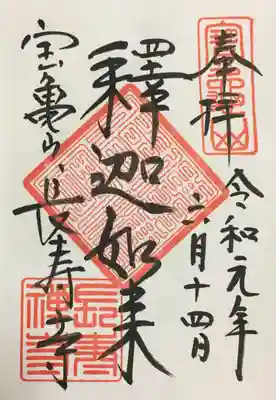 奉拝
令和元年
六月十四日
釋迦如来
宝亀山 長寿寺
長壽禪寺